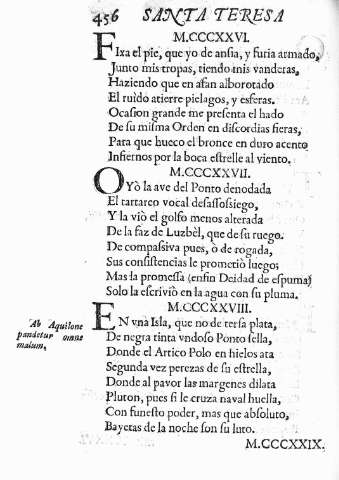 456 SANTA TERESA
M.CCCXXVI.
FIxa el pie, que yo de ansia, y furia armado,
Junto mis tropas, tiendo mis vanderas,
Haziendo que en afan alborotado
El ruìdo atierre pielagos, y esferas.
Ocasion grande me presenta el hado
De su misma Orden en discordias fieras,
Para que hueco el bronce en duro acento
Infiernos por la boca estrelle al viento.
M.CCCXXVII.
OYò la ave del Ponto denodada
El tartareo vocal desassossiego,
Y la viò el golfo menos alterada
De la faz de Luzbèl, que de su ruego.
De compassiva pues, ò de rogada,
Sus consistencias le prometiò luego;
Mas la promessa (enfin Deidad de espuma)
Solo la escriviò en la agua con su pluma.
M.CCCXXVIII.
EN vna Isla, que no de tersa plata,
De negra tinta vndoso Ponto sella,
Donde el Artico Polo en hielos ata
Segunda vez perezas de su estrella,
Donde al pavor las margenes dilata
Pluton, pues si le cruza naval huella,
Con funesto poder, mas que absoluto,
Bayetas de la noche son su luto.
Ab Aquilone
pandetur omne
malum.
M.CCCXXIX.